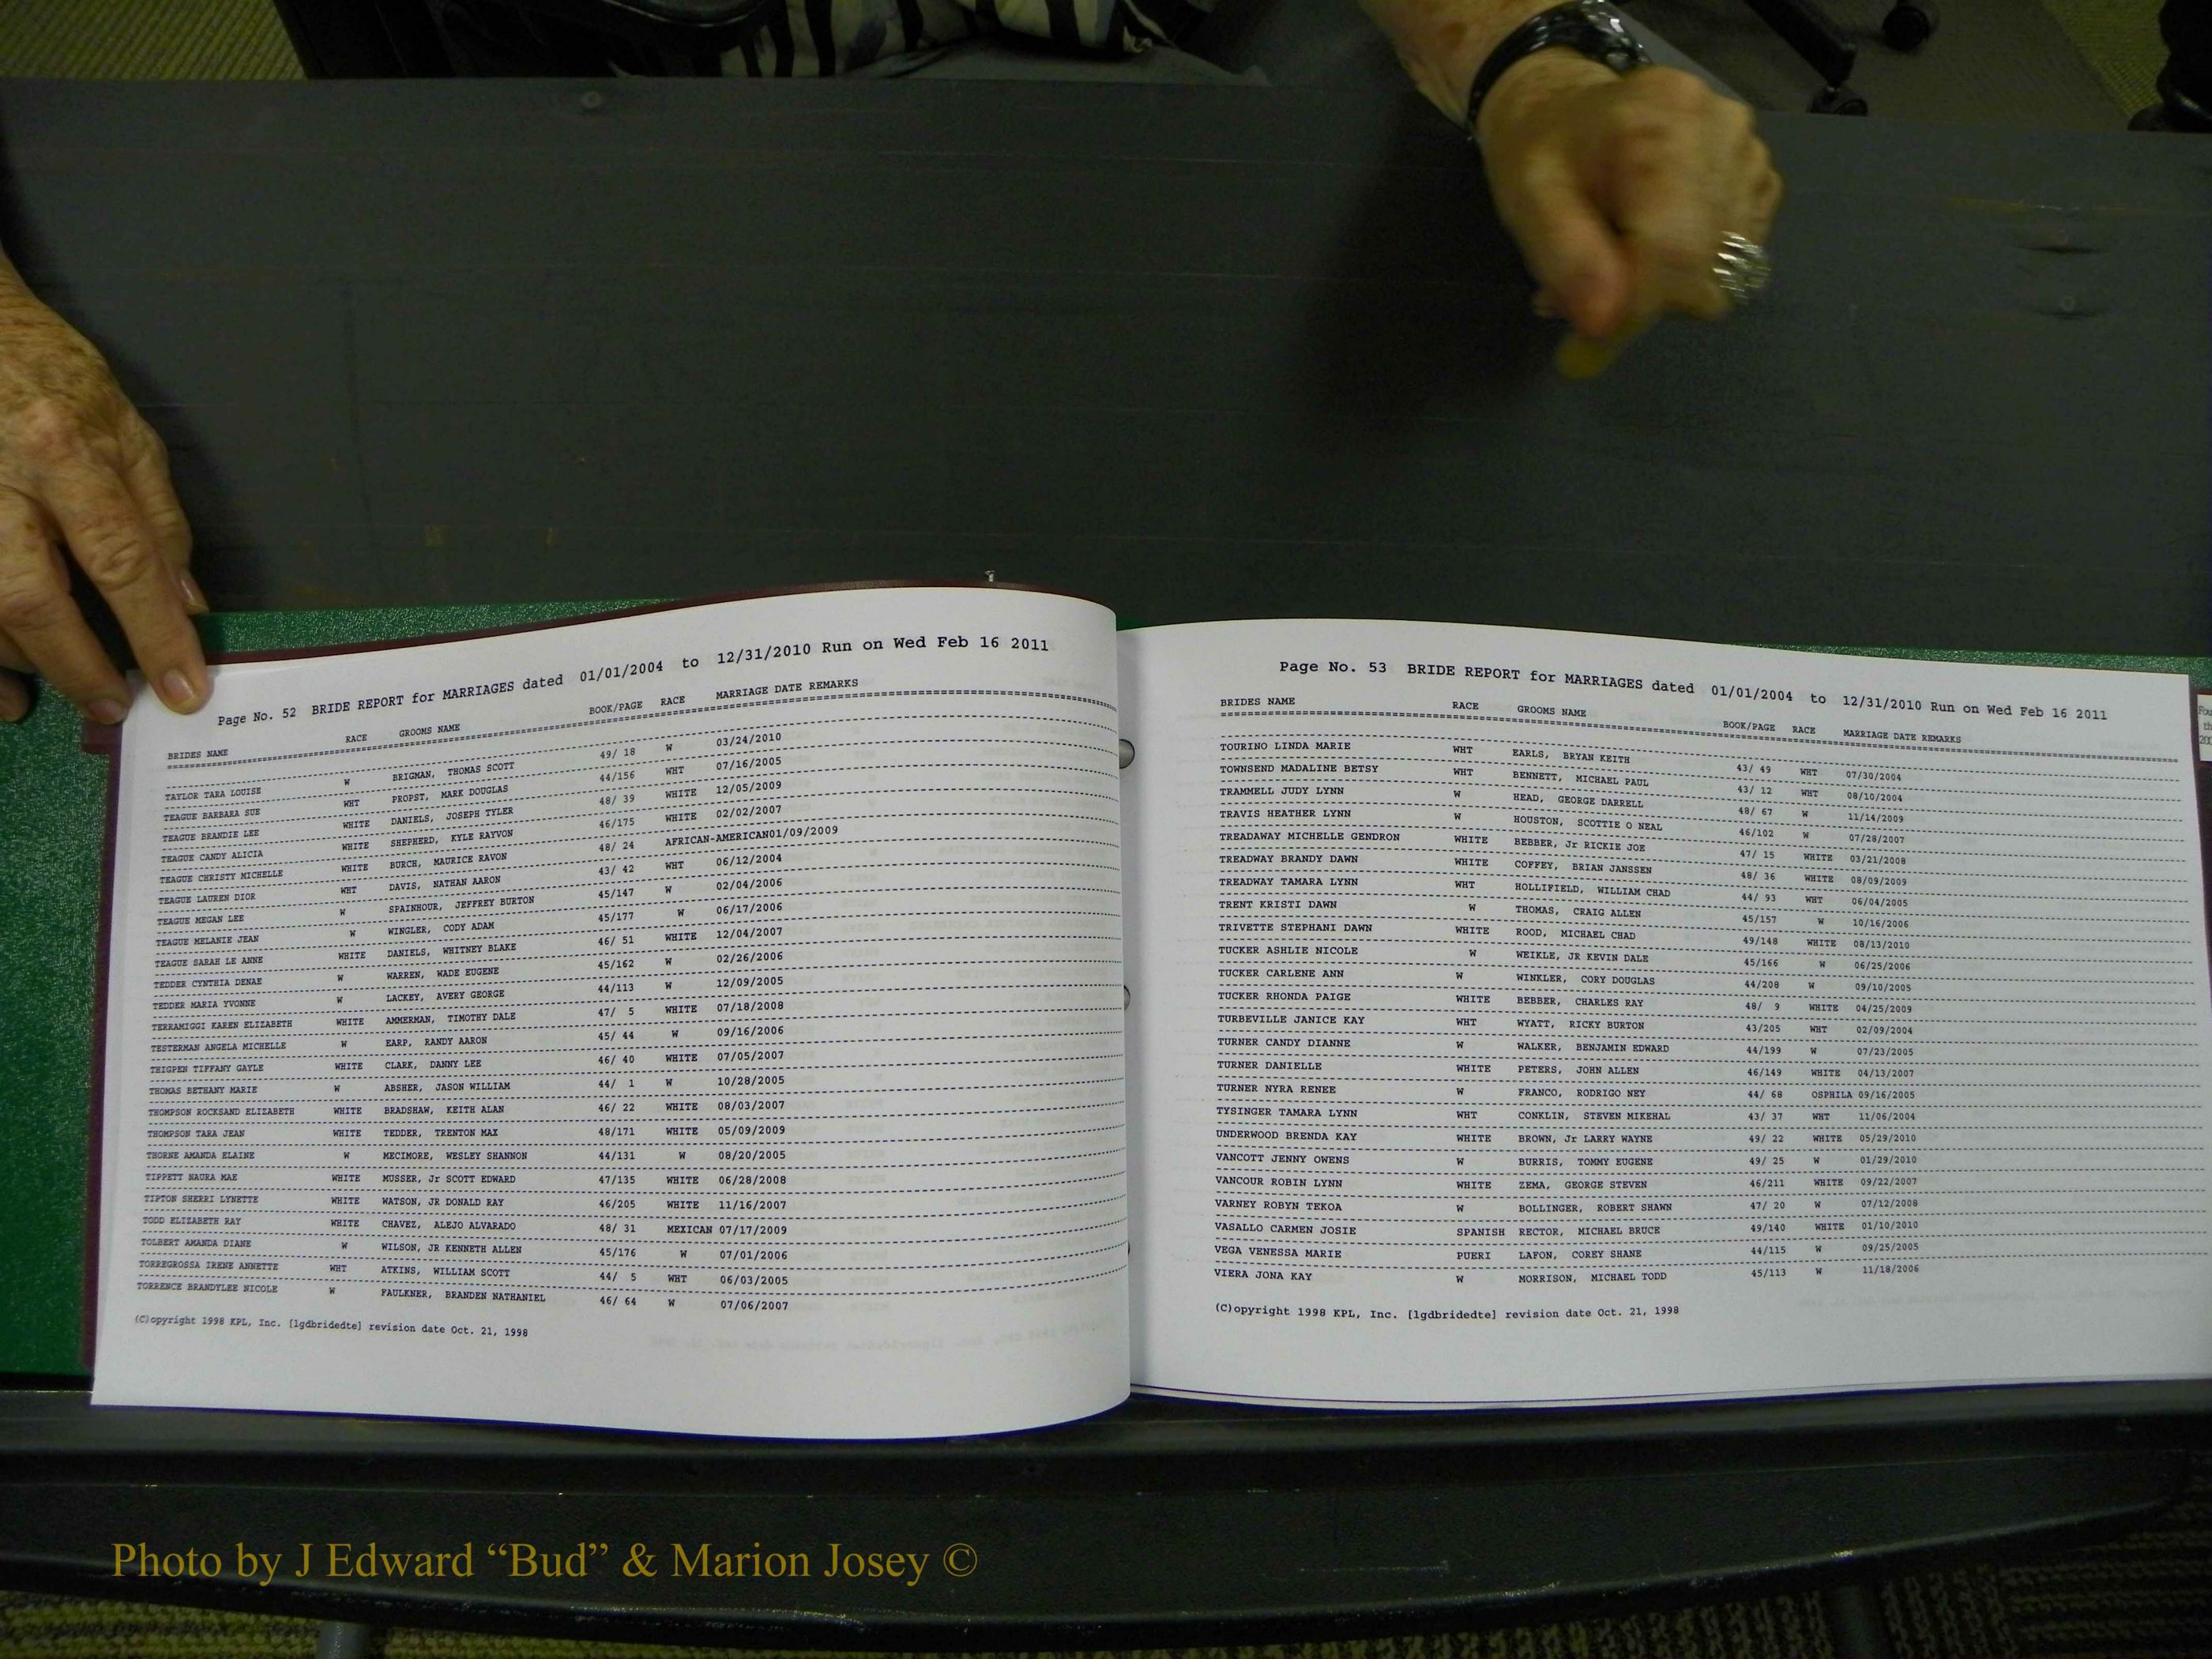 Page No. 52 BRIDE REPORT for MARRIAGES dated 01/01/2004 to 12/31/2010 Run on Wed Feb 16 2011
BRIDES NAME RACE GROOMS NAME BOOK/PAGE RACE MARRIAGE DATE REMARKS
TAYLOR TARA LOUISE W BRIGMAN, THOMAS SCOTT 49/ 18 W 03/24/2010
TEAGUE BARBARA SUE WHT PROPST, MARK DOUGLAS 44/156 WHT 07/16/2005
TEAGUE BRANDIE LEE WHITE DANIELS, JOSEPH TYLER 48/ 39 WHITE 12/05/2009
TEAGUE CANDY ALICIA WHITE SHEPHERD, KYLE RAYVON 46/175 WHITE 02/02/2007
TEAGUE CHRISTY MICHELLE WHITE BURCH, MAURICE RAVON 48/ 24 AFRICAN-AMERICAN01/09/2009
TEAGUE LAUREN DIOR WHT DAVIS, NATHAN AARON 43/ 42 WHT 06/12/2004
TEAGUE MEGAN LEE W SPAINHOUR, JEFFREY BURTON 45/147 W 02/04/2006
TEAGUE MELANIE JEAN W WINGLER, CODY ADAM 45/177 W 06/17/2006
TEAGUE SARAH LE ANNE WHITE DANIELS, WHITNEY BLAKE 46/ 51 WHITE 12/04/2007
TEDDER CYNTHIA DENAE W WARREN, WADE EUGENE 45/162 W 02/26/2006
TEDDER MARIA YVONNE W LACKEY, AVERY GEORGE 44/113 W 12/09/2005
TERRAMIGGI KAREN ELIZABETH WHITE AMMERMAN, TIMOTHY DALE 47/ 5 WHITE 07/18/2008
TESTERMAN ANGELA MICHELLE W EARP, RANDY AARON 45/ 44 W 09/16/2006
THIGPEN TIFFANY GAYLE WHITE CLARK, DANNY LEE 46/ 40 WHITE 07/05/2007
THOMAS BETHANY MARIE W ABSHER, JASON WILLIAM 44/ 1 W 10/28/2005
THOMPSON ROCKSAND ELIZABETH WHITE BRADSHAW, KEITH ALAN 46/ 22 WHITE 08/03/2007
THOMPSON TARA JEAN WHITE TEDDER, TRENTON MAX 48/171 WHITE 05/09/2009
THORNE AMANDA ELAINE W MECIMORE, WESLEY SHANNON 44/131 W 08/20/2005
TIPPETT NAURA MAE WHITE MUSSER, Jr SCOTT EDWARD 47/135 WHITE 06/28/2008
TIPTON SHERRI LYNETTE WHITE WATSON, JR DONALD RAY 46/205 WHITE 11/16/2007
TODD ELIZABETH RAY WHITE CHAVEZ, ALEJO ALVARADO 48/ 31 MEXICAN 07/17/2009
TOLBERT AMANDA DIANE W WILSON, JR KENNETH ALLEN 45/176 W 07/01/2006
TORREGROSSA IRENE ANNETTE WHT ATKINS, WILLIAM SCOTT 44/ 5 WHT 06/03/2005
TORRENCE BRANDYLEE NICOLE W FAULKNER, BRANDEN NATHANIEL 46/ 64 W 07/06/2007
(C)opyright 1998 KPL, Inc. [lgdbridedte] revision date Oct. 21, 1998
Page No. 53 BRIDE REPORT for MARRIAGES dated 01/01/2004 to 12/31/2010 Run on Wed Feb 16 2011
BRIDES NAME RACE GROOMS NAME BOOK/PAGE RACE MARRIAGE DATE REMARKS
TOURINO LINDA MARIE WHT EARLS, BRYAN KEITH 43/ 49 WHT 07/30/2004
TOWNSEND MADALINE BETSY WHT BENNETT, MICHAEL PAUL 43/ 12 WHT 08/10/2004
TRAMMELL JUDY LYNN W HEAD, GEORGE DARRELL 48/ 67 W 11/14/2009
TRAVIS HEATHER LYNN W HOUSTON, SCOTTIE O NEAL 46/102 W 07/28/2007
TREADAWAY MICHELLE GENDRON WHITE BEBBER, Jr RICKIE JOE 47/ 15 WHITE 03/21/2008
TREADWAY BRANDY DAWN WHITE COFFEY, BRIAN JANSSEN 48/ 36 WHITE 08/09/2009
TREADWAY TAMARA LYNN WHT HOLLIFIELD, WILLIAM CHAD 44/ 93 WHT 06/04/2005
TRENT KRISTI DAWN W THOMAS, CRAIG ALLEN 45/157 W 10/16/2006
TRIVETTE STEPHANI DAWN WHITE ROOD, MICHAEL CHAD 49/148 WHITE 08/13/2010
TUCKER ASHLIE NICOLE W WEIKLE, JR KEVIN DALE 45/166 W 06/25/2006
TUCKER CARLENE ANN W WINKLER, CORY DOUGLAS 44/208 W 09/10/2005
TUCKER RHONDA PAIGE WHITE BEBBER, CHARLES RAY 48/ 9 WHITE 04/25/2009
TURBEVILLE JANICE KAY WHT WYATT, RICKY BURTON 43/205 WHT 02/09/2004
TURNER CANDY DIANNE W WALKER, BENJAMIN EDWARD 44/199 W 07/23/2005
TURNER DANIELLE WHITE PETERS, JOHN ALLEN 46/149 WHITE 04/13/2007
TURNER NYRA RENEE W FRANCO, RODRIGO NEY 44/ 68 OSPHILA 09/16/2005
TYSINGER TAMARA LYNN WHT CONKLIN, STEVEN MIKEHAL 43/ 37 WHT 11/06/2004
UNDERWOOD BRENDA KAY WHITE BROWN, Jr LARRY WAYNE 49/ 22 WHITE 05/29/2010
VANCOTT JENNY OWENS W BURRIS, TOMMY EUGENE 49/ 25 W 01/29/2010
VANCOUR ROBIN LYNN WHITE ZEMA, GEORGE STEVEN 46/211 WHITE 09/22/2007
VARNEY ROBYN TEKOA W BOLLINGER, ROBERT SHAWN 47/ 20 W 07/12/2008
VASALLO CARMEN JOSIE SPANISH RECTOR, MICHAEL BRUCE 49/140 WHITE 01/10/2010
VEGA VENESSA MARIE PUERI LAFON, COREY SHANE 44/115 W 09/25/2005
VIERA JONA KAY W MORRISON, MICHAEL TODD 45/113 W 11/18/2006
(C)opyright 1998 KPL, Inc. [lgdbridedte] revision date Oct. 21, 1998
Photo by J Edward “Bud” & Marion Josey ©